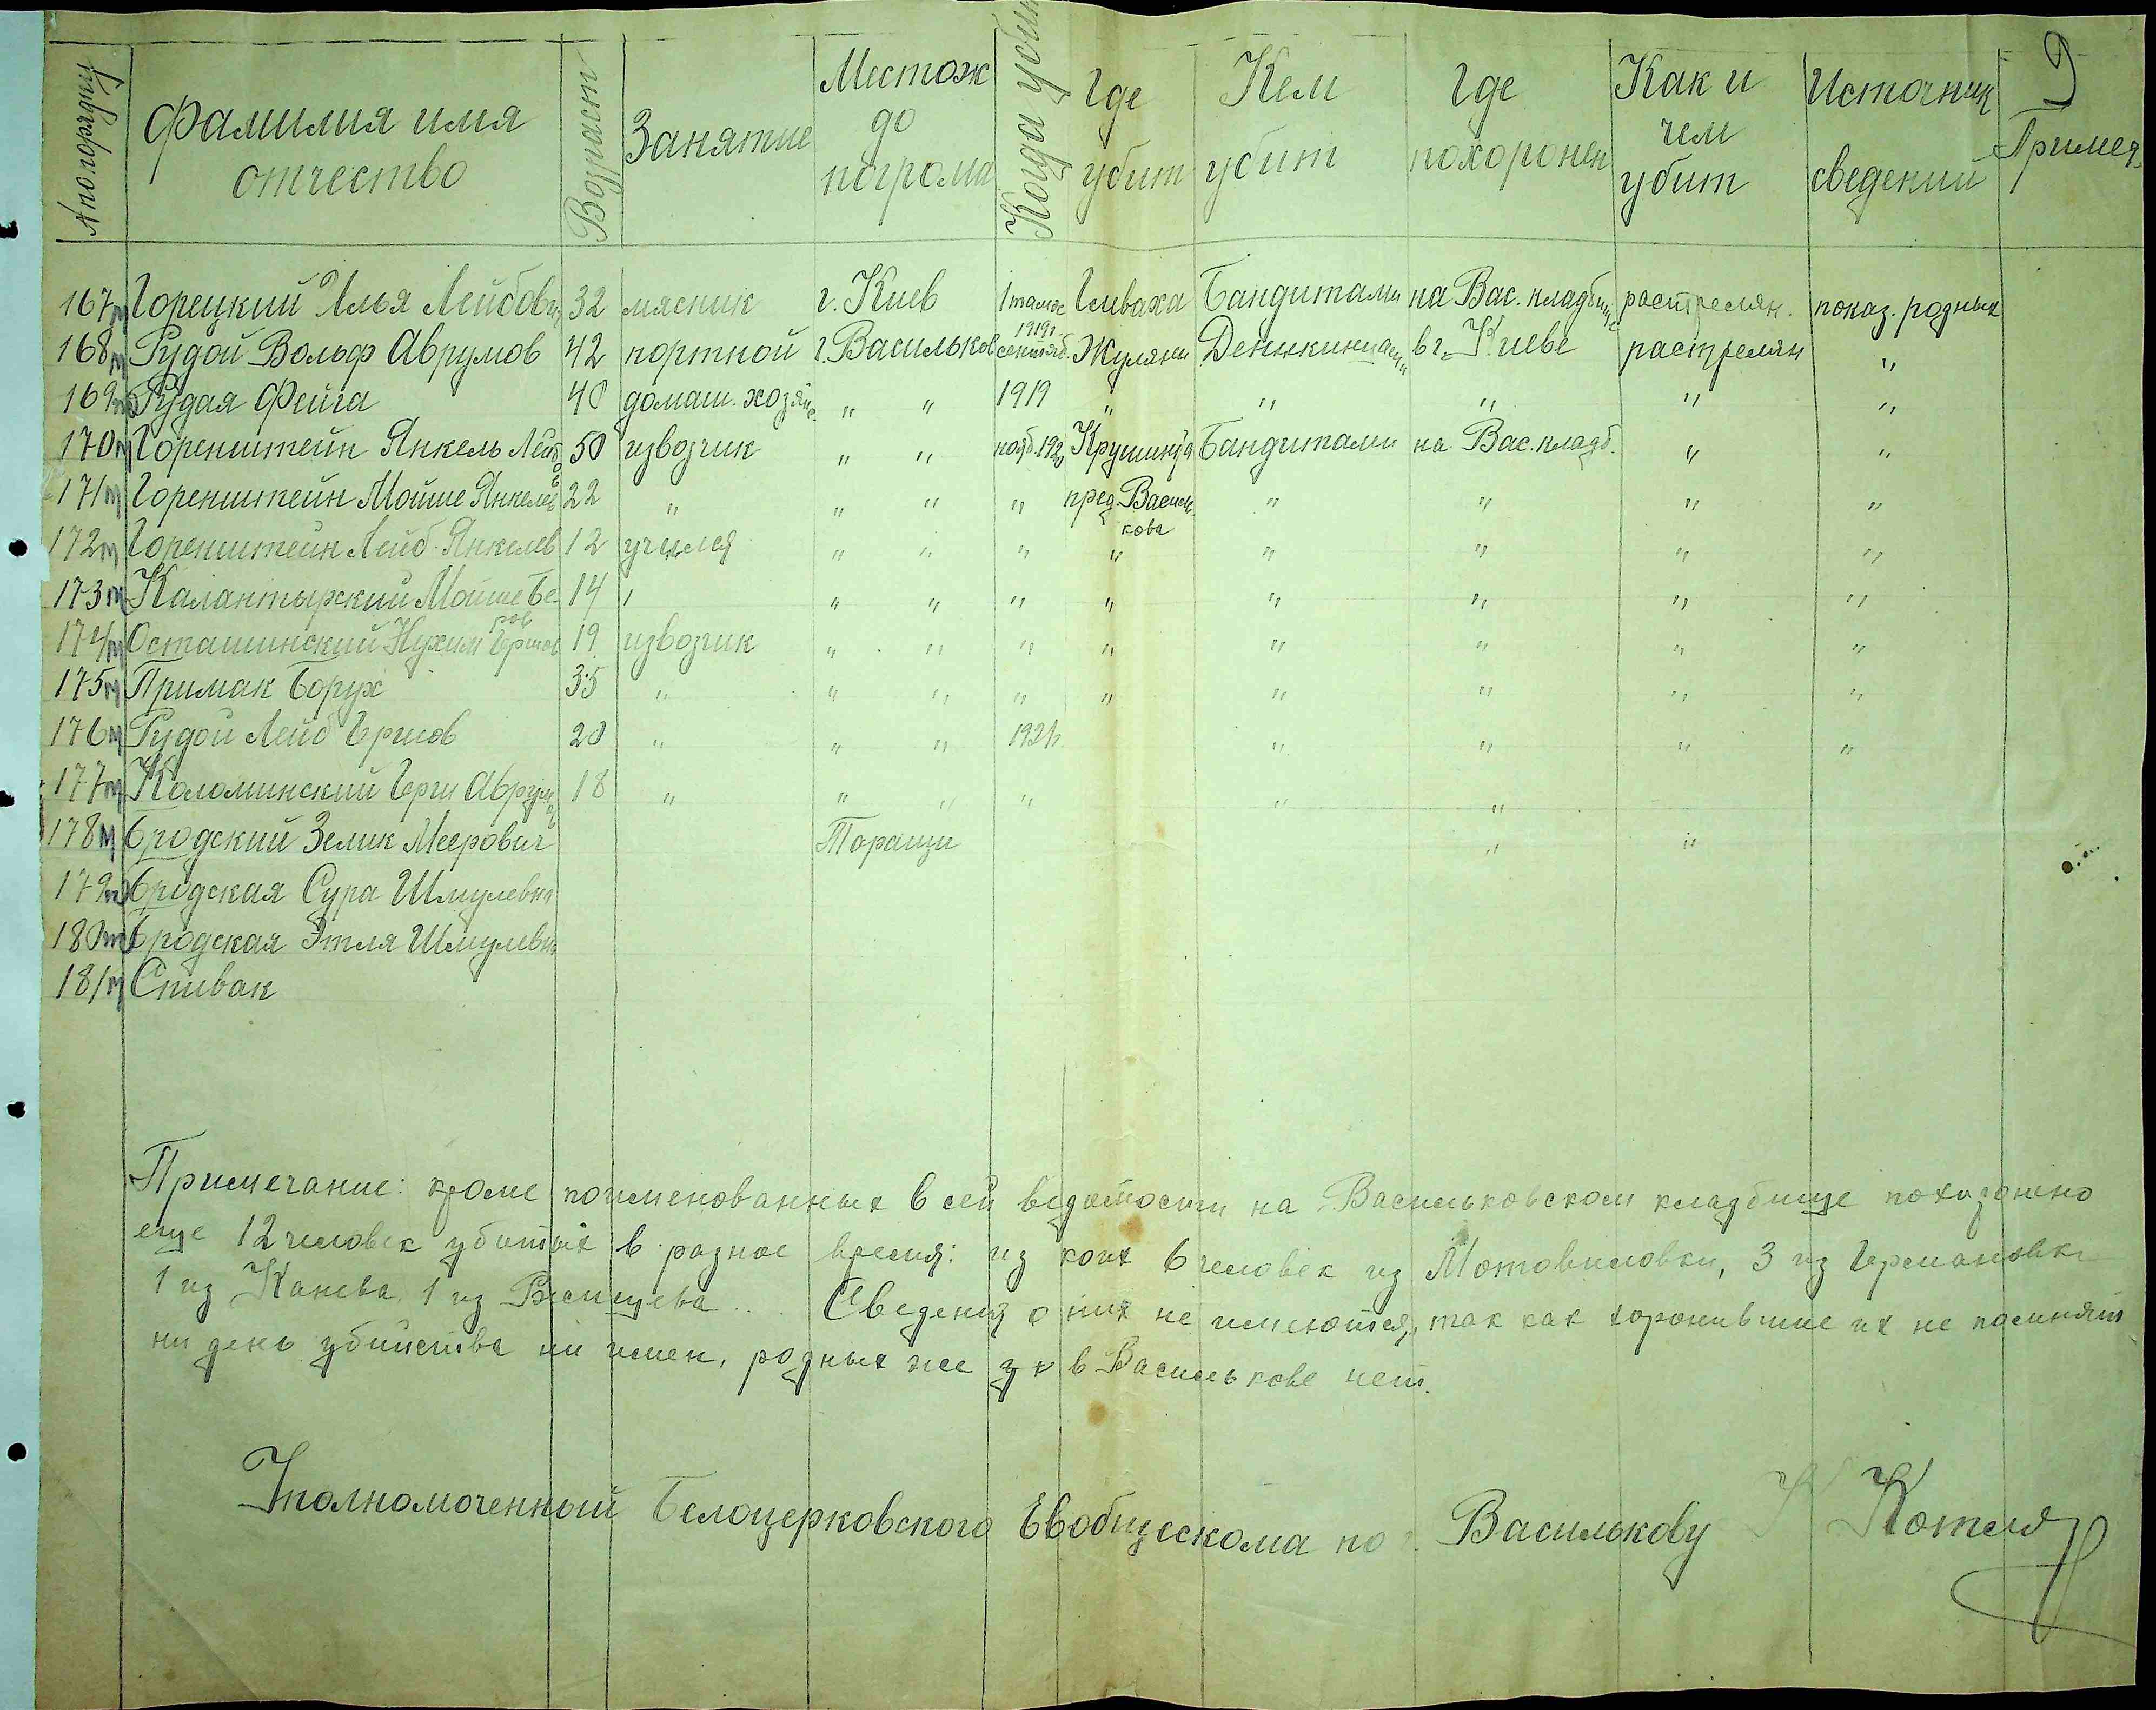 9
№ по порядку Фамилия имя отчество Возраст Занятие Местож до погрома Когда убит Где убит Кем убит Где похоронен Как и чем убит Источник сведений Примеч
167 м Горецкий Илья Лейбович 32 мясник г. Киев 1919г. Гливаха Бандитами на Вас. кладбище растрелян. показ. родных
168 м Рудой Вольф Аврумов 42 портной г. Васильков сентяб. Жуляни Деникинцами в г. Киеве растрелян "
169 Рудая Фейга 40 домаш. хозяйс. " " 1919 " " " " "
170 м Горенштейн Янкель Лейбов 50 извозчик " " нояб. 1920 Крушинка Бандитами на Вас. кладб. " "
171 м Горенштейн Мойше Янкелев 22 " " " " пред. Василькова " " " "
172 м Горенштейн Лейб Янкелев 12 учился " " " " " " " "
173 м Калантырский Мойше Беров 14 " " " " " " " " "
174 м Осташинский Нухим Гершов 19 извозчик " " " " " " " "
175 м Примак Борух 35 " " " " " " " " "
176 м Рудой Лейб Гершов 20 " " " 1921г. " " " "
177 м Коломинский Герш Аврумов 18 " " " " " "
178 м Бродский Зелик Меерович Таращи " "
179 Бродская Сура Шмулевн
180 Бродская Этля Шмулевн
181 м Спивак
Примечание: кроме поименованных в сей ведомости на Васильковском кладбище похоронено
еще 12 человек убитых в разное время: из коих 6 человек из Мотовиловки, 3 из Германовки
1 из Канева, 1 из ... Сведения о них не имеются, так как хоронившие их не помнят
ни день убийства ни имен, родных же их в Василькове нет.
Уполномоченный Белоцерковского Евобщескома по г. Василькову Котляр